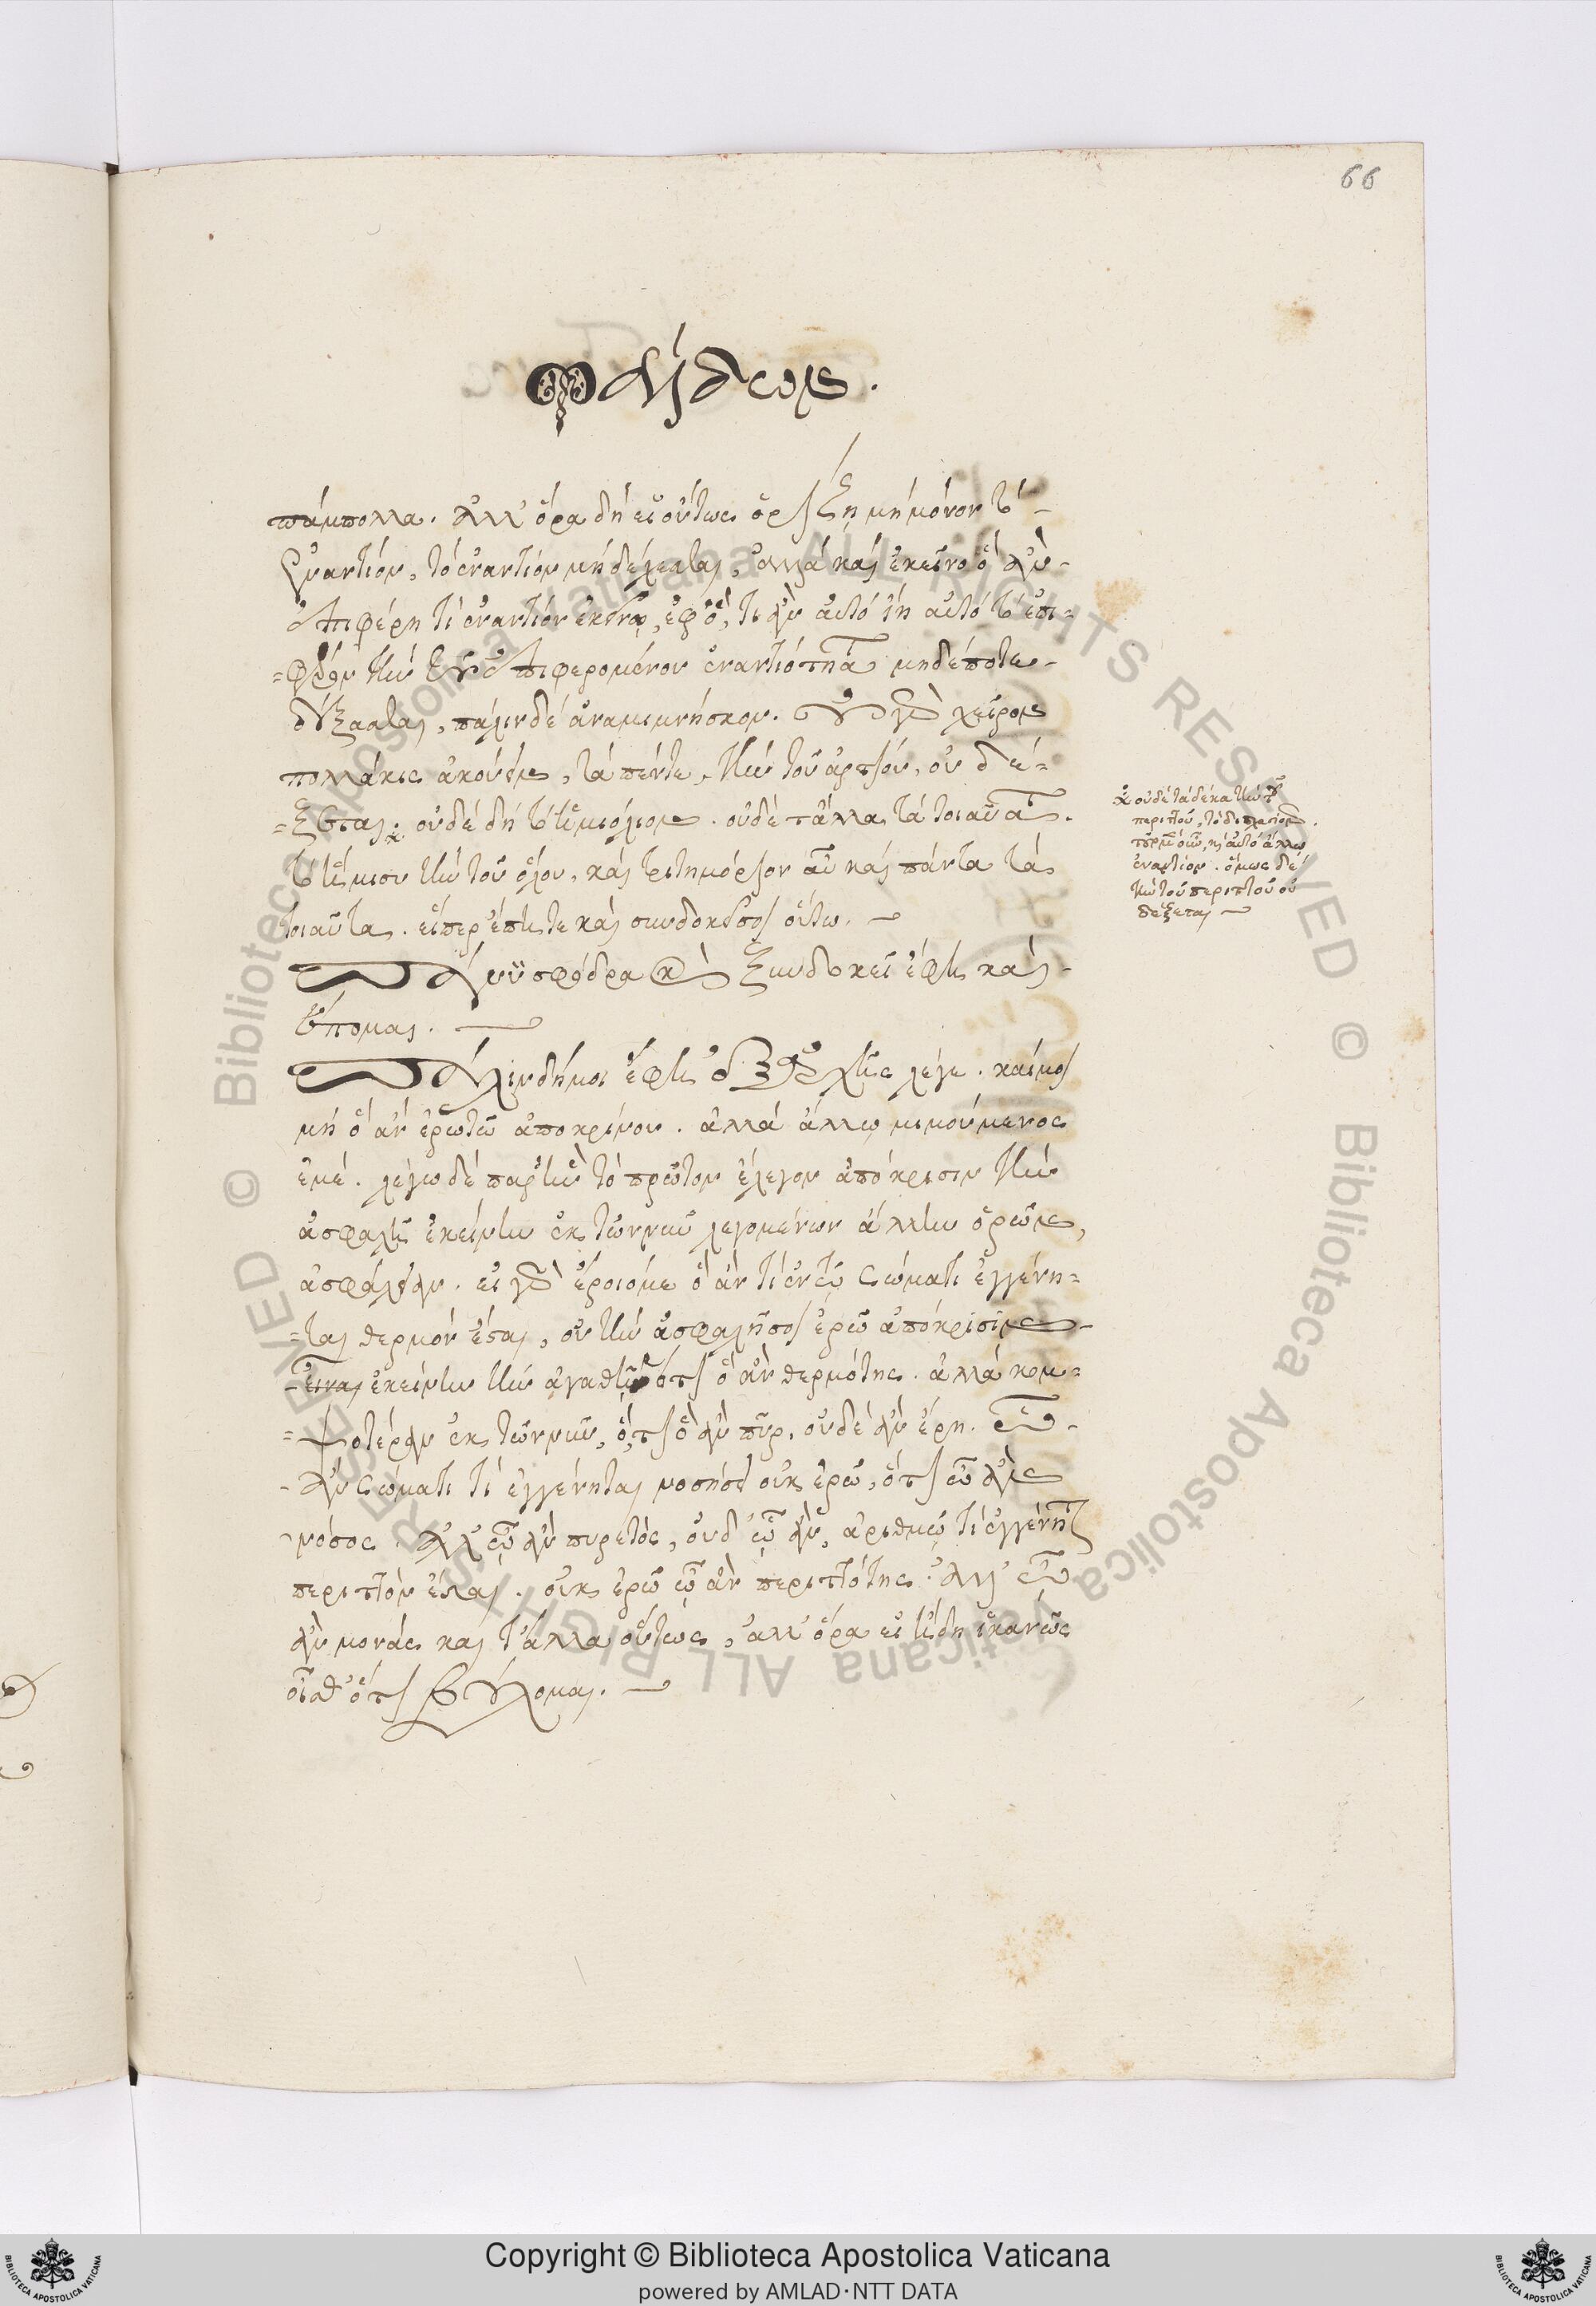 66
Φαίδων.
πάμπολλα. ἀλλ' ὅρα δὴ εἰ οὕτως ὁρίζῃ μὴ μόνον τὸ
ἐναντίον, τὸ ἐναντίον μὴ δέχεσθαι, ἀλλὰ καὶ ἐκεῖνο ὃ ἂν
ἐπιφέρῃ τὶ ἐναντίον ἐκείνῳ, ἐφ' ὅ, τι ἂν αὐτὸ ἴῃ αὐτὸ τὸ ἐπι-
=φέρον τὴν τοῦ ἐπιφερομένου ἐναντιότητα μηδέποτε
δέξασθαι, πάλιν δὲ ἀναμιμνήσκου. οὐ γὰρ χεῖρον
πολλάκις ἀκούειν, τὰ πέντε, τὴν τοῦ ἀρτίου, οὐ δέ=
=ξεται. οὐδὲ δὴ τὸ ἡμιόλιον. οὐδὲ τἄλλα τὰ τοιαῦτα.
τὸ ἥμισυ τὴν τοῦ ὅλου, καὶ τριτημόριον αὖ καὶ πάντα τὰ
τοιαῦτα. εἴπερ ἕπῃ τε καὶ συνδοκεῖ σοι οὕτω.
Πάνυ σφόδρα καὶ ξυνδοκεῖ ἔφη καὶ
ἕπομαι.
Πάλιν δή μοι ἔφη ἐξ ἀρχῆς λέγε. καί μοι
μὴ ὃ ἂν ἐρωτῶ ἀποκρίνου. ἀλλὰ ἄλλῳ μιμούμενος
ἐμέ. λέγω δὲ παρ' ἣν τὸ πρῶτον ἔλεγον ἀπόκρισιν τὴν
ἀσφαλῆ ἐκείνην ἐκ τῶν νῦν λεγομένων ἄλλην ὁρῶν,
ἀσφάλειαν. εἰ γὰρ ἔροιό με ὃ ἂν τὶ ἐν τῷ σώματι ἐγγένη=
=ται θερμὸν ἔσται, οὐ τὴν ἀσφαλῆ σοι ἐρῶ ἀπόκρισιν
ἐκείνην τὴν ἀμαθῆ ὅτι ὃ ἂν θερμότης. ἀλλὰ κομ=
=ψοτέραν ἐκ τῶν νῦν, ὅτι ὃ ἂν πῦρ, οὐδὲ ἂν ἔρῃ. ᾧ
ἂν σώματι τὶ ἐγγένηται νοσήσει οὐκ ἐρῶ, ὅτι ᾧ ἂν
νόσος. ἀλλ' ᾧ ἂν πυρετός, οὐδ' ᾧ ἂν, ἀριθμῷ τὶ ἐγγένηται
περιττὸν ἔσται. οὐκ ἐρῶ ᾧ ἂν περιττότης. ἀλλ' ᾧ
ἂν μονάς καὶ τ' ἄλλα οὕτως, ἀλλ' ὅρα εἰ ἤδη ἱκανῶς
οἶσθ' ὅτι βούλομαι.
οὐδὲ τὰ δέκα τὴν τοῦ
περιττοῦ, τὸ διπλάσιον.
τοῦτο μὲν οὖν, καὶ αὐτὸ ἄλλῳ
ἐναντίον. ὅμως δὲ
τὴν τοῦ περιττοῦ οὐ
δέξεται
Copyright © Biblioteca Apostolica Vaticana
powered by AMLAD·NTT DATA